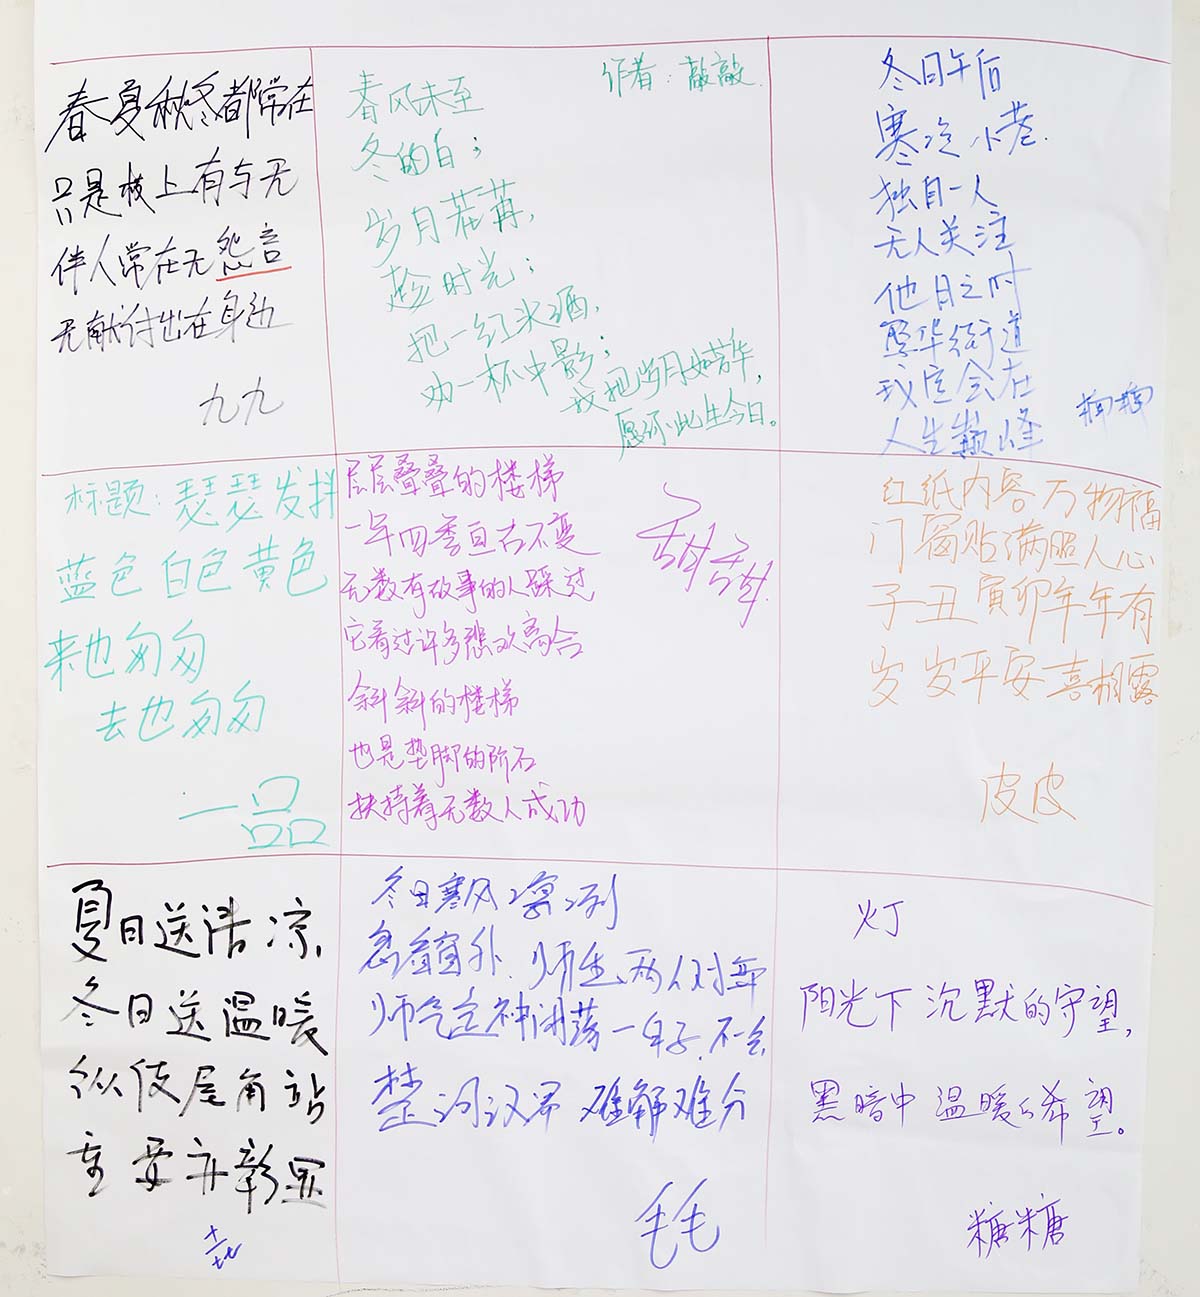 春夏秋冬都常在
只是枝上有与无
伴人常在无怨言
无献付出在身边
九九
作者：敲敲
春风未至
冬的白；
岁月荏苒，
趁时光；
把一红米酒，
劝一杯中影；
我把岁月如若华，
愿你此生今日。
冬日午后
寒冷小巷.
独自一人
无人关注
他日之时
繁华街道
我定会在
人生巅峰
标题：瑟瑟发抖
蓝色白色黄色
来也匆匆
去也匆匆
一品
层层叠叠的楼梯
一年四季亘古不变
无数有故事的人踩过
它看过许多悲欢离合
斜斜的楼梯
也是垫脚的阶石
扶持着无数人成功
甜甜
红纸内容万物福
门窗贴满照人心
子丑寅卯年年有
岁岁平安喜相露
皮皮
夏日送清凉，
冬日送温暖
纵使尾角站
重要亦彰显
冬日寒风凛冽
忽看窗外，师生两人对弈
师气定神闲落一子，不会
楚河汉界 难解难分
毛毛
灯
阳光下沉默的守望，
黑暗中温暖的希望。
糖糖